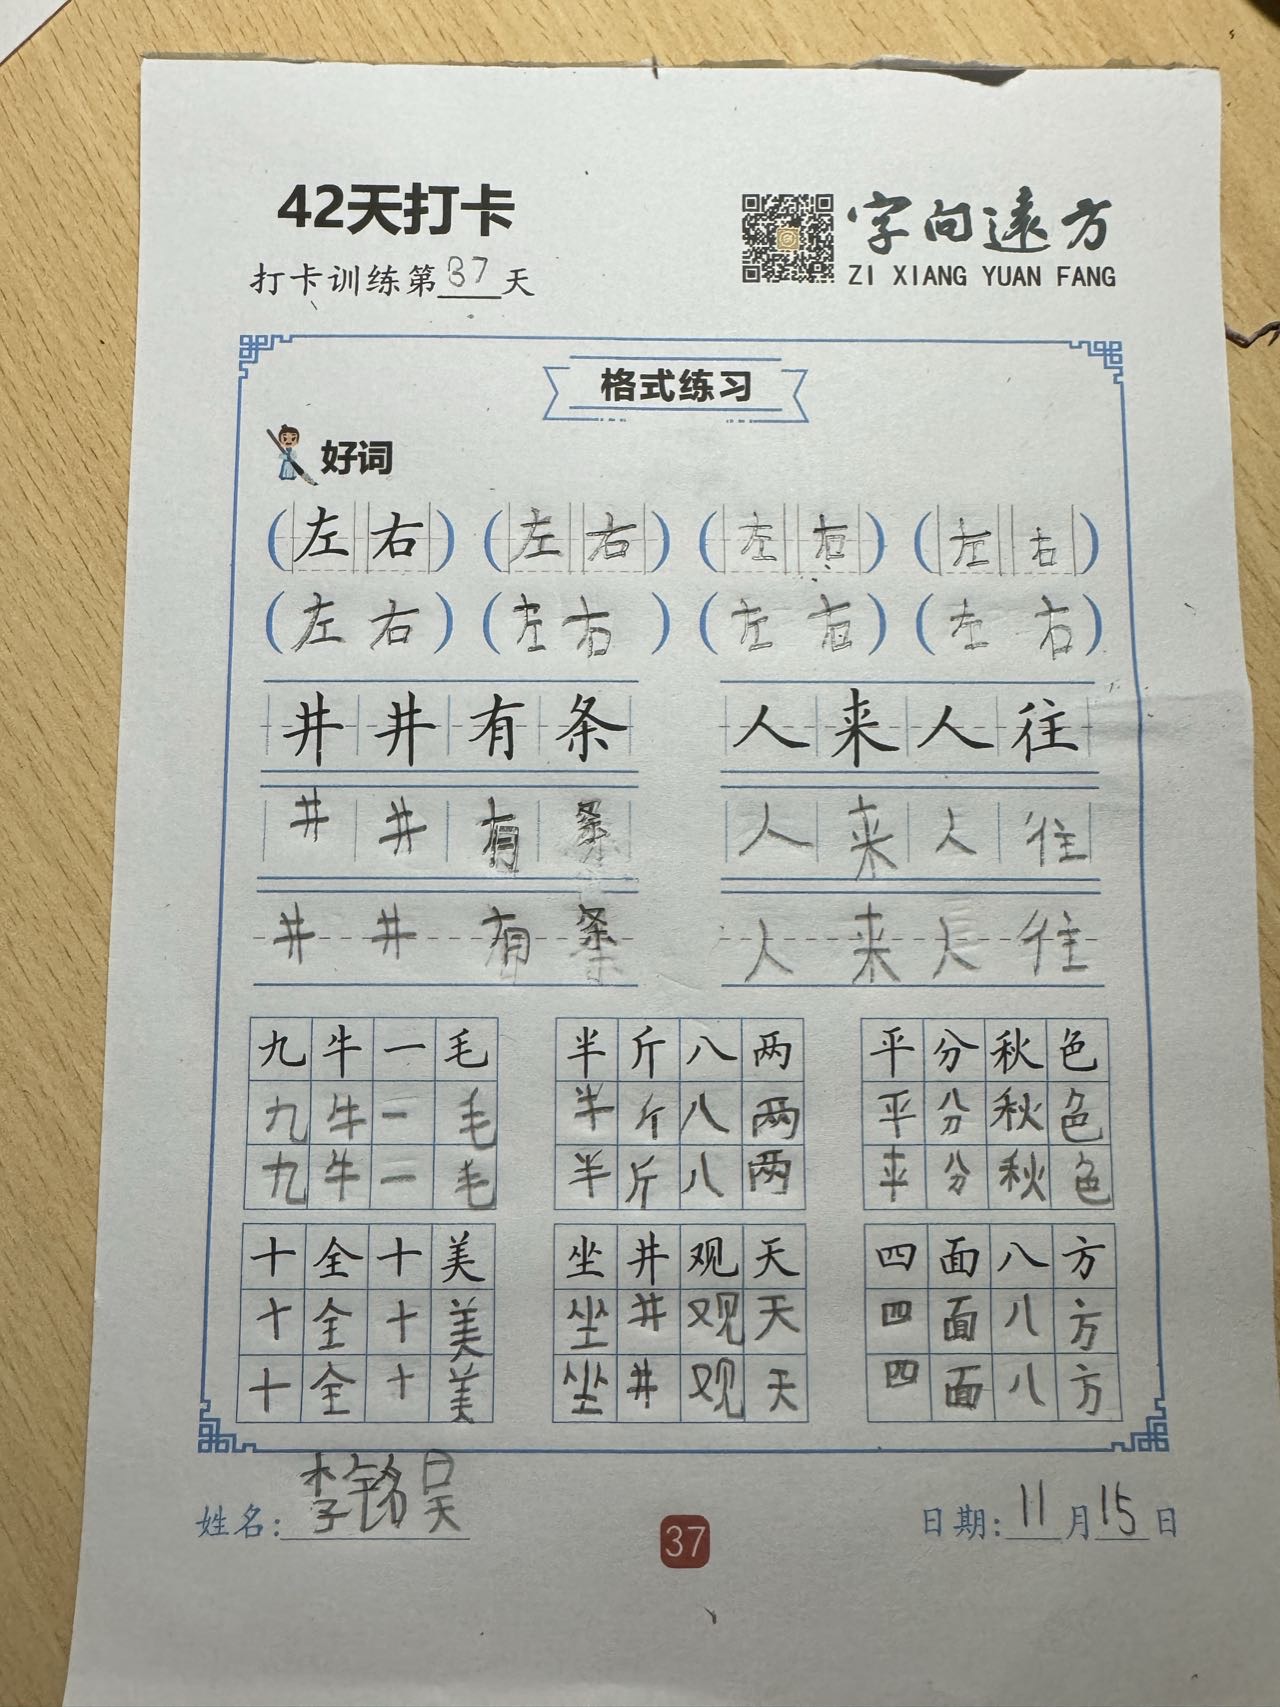 42天打卡
字向遠方
打卡训练第37天
ZI XIANG YUAN FANG
格式练习
好词
(左右) (左右) (左右) (左右)
(左右) (左右) (左右) (左右)
井井有条 人来人往
井井有条 人来人往
井井有条 人来人往
九牛一毛 半斤八两 平分秋色
九牛一毛 半斤八两 平分秋色
九牛一毛 半斤八两 平分秋色
十全十美 坐井观天 四面八方
十全十美 坐井观天 四面八方
十全十美 坐井观天 四面八方
姓名:李铭昊 日期:11月15日
37